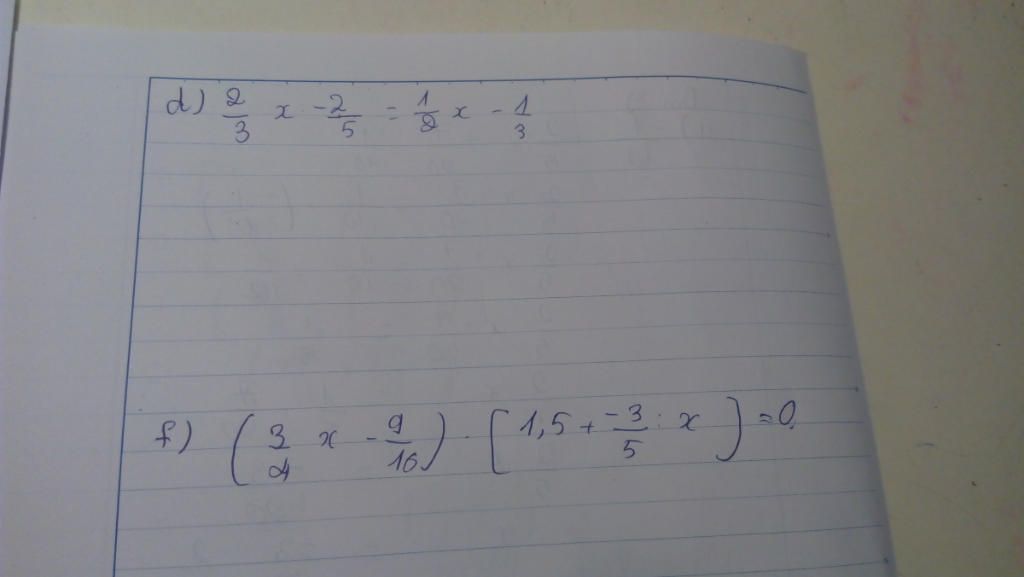 d) 2/3 x - 2/5 = 1/2 x - 1/3
f) (3/4 x - 9/16) . [1,5 + -3/5 : x] = 0